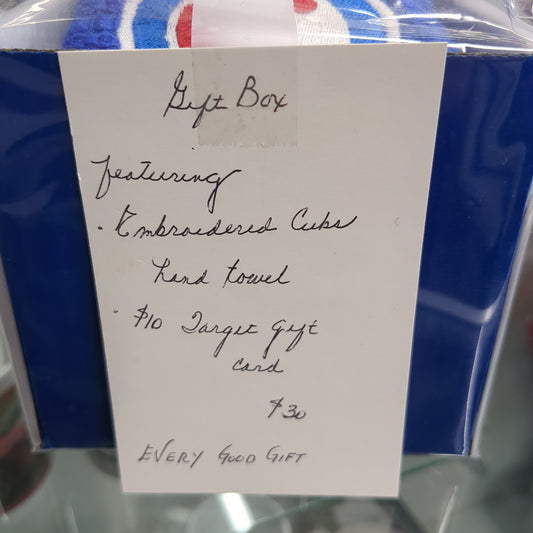 Gift Box
featuring
· Embroidered Cubs
hand towel
· $10 Target gift
card
$30
EVERY GOOD GIFT